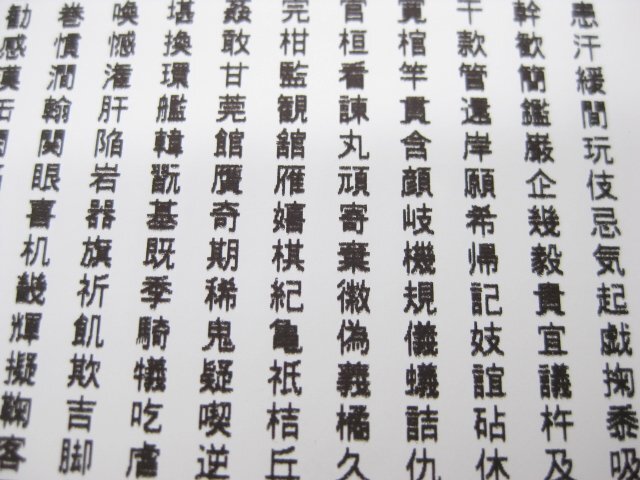 勧巻喚堪姦完官寛干幹患
感慣憾換敢柑桓棺款歓汗
漢澗潅環甘監看竿管簡緩
翰肝艦莞観諌貫還鑑間
関陥韓館舘丸含岸巌玩
眼岩翫贋雁頑顔願企伎
喜器基奇嬉寄岐希幾忌
机旗既期棋棄機帰毅気
畿祈季稀紀徽規記貴起
輝飢騎鬼亀偽儀妓宜戯
擬欺犠疑祇義蟻誼議掬
鞠吉吃喫桔橘詰砧杵黍
客脚虐逆丘久仇休及吸